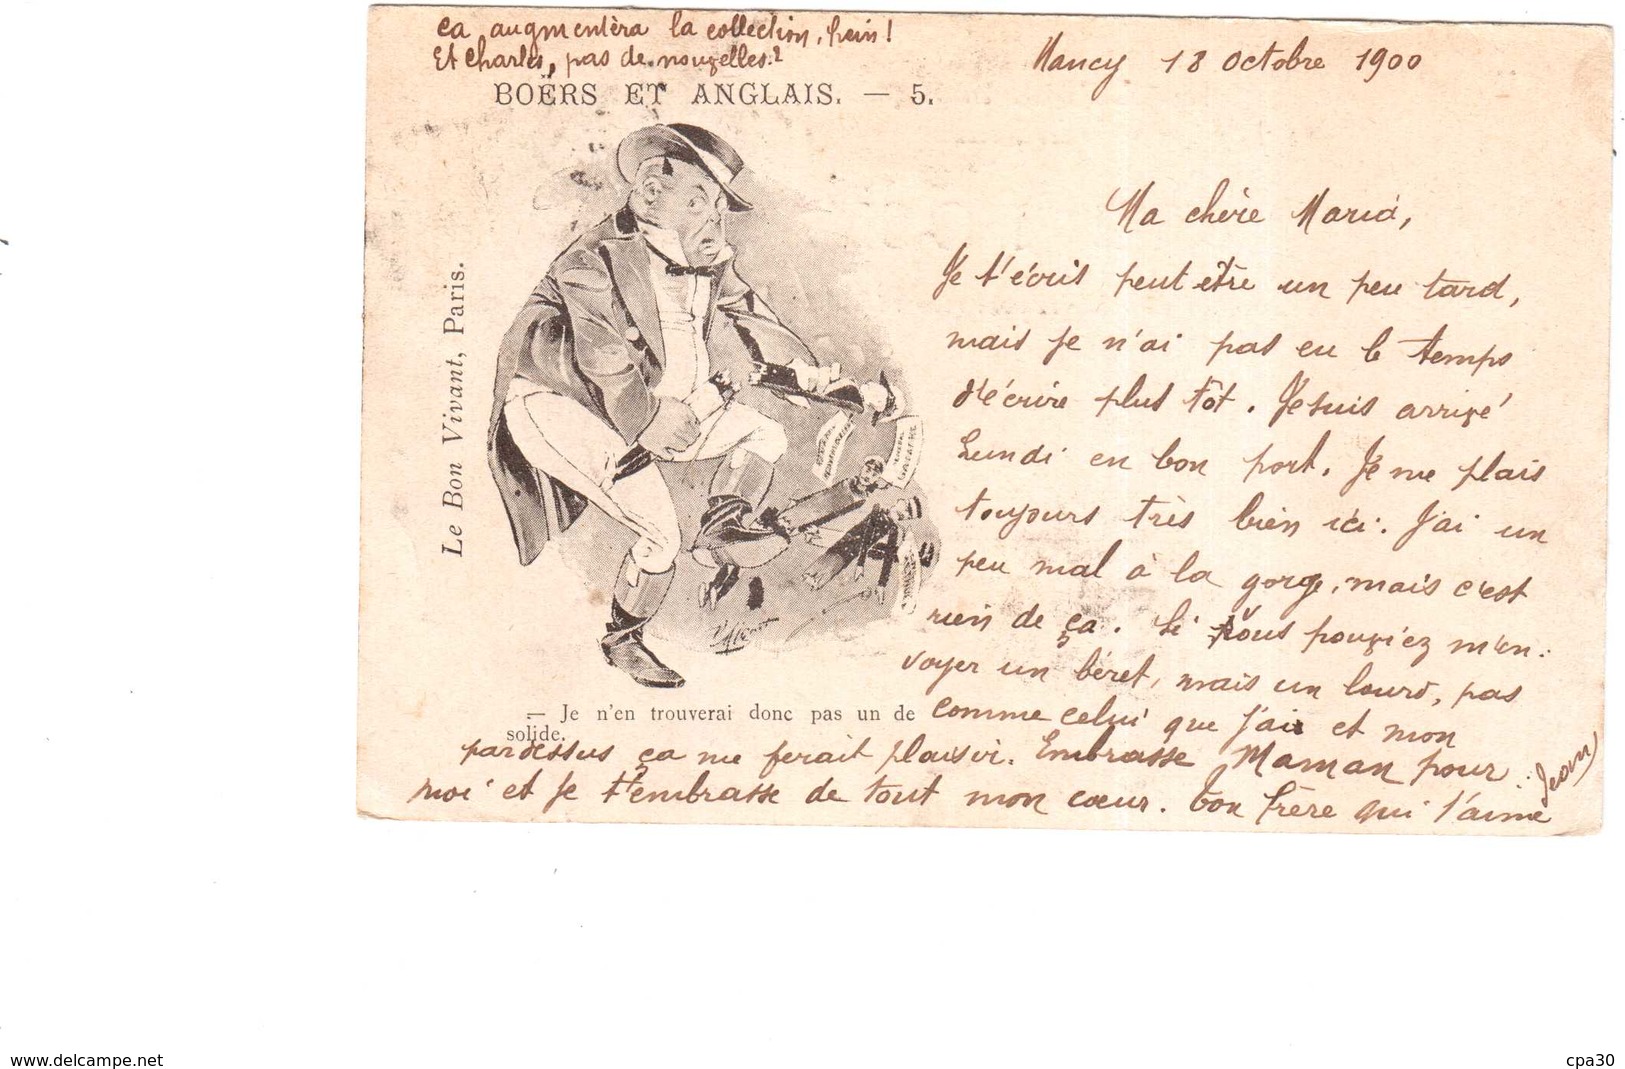 ça augmentèra la collection, hein!
Et Charles, pas de nouvelles?
BOËRS ET ANGLAIS. — 5.
Nancy 18 Octobre 1900
Le Bon Vivant, Paris.
Ma chère Maria,
Je t'écris peut être un peu tard,
mais je n'ai pas eu le temps
d'écrire plus tôt. Je suis arrivé
Lundi en bon port. Je me plais
toujours très bien ici. J'ai un
peu mal à la gorge, mais c'est
rien de ça. Si vous pouviez m'en-
voyer un béret, mais un lourd, pas
comme celui que j'ai et mon
pardessus ça me ferait plaisir. Embrasse Maman pour
moi et je t'embrasse de tout mon cœur. Ton frère qui t'aime
Jean
— Je n'en trouverai donc pas un de
solide.
www.delcampe.net
cpa30